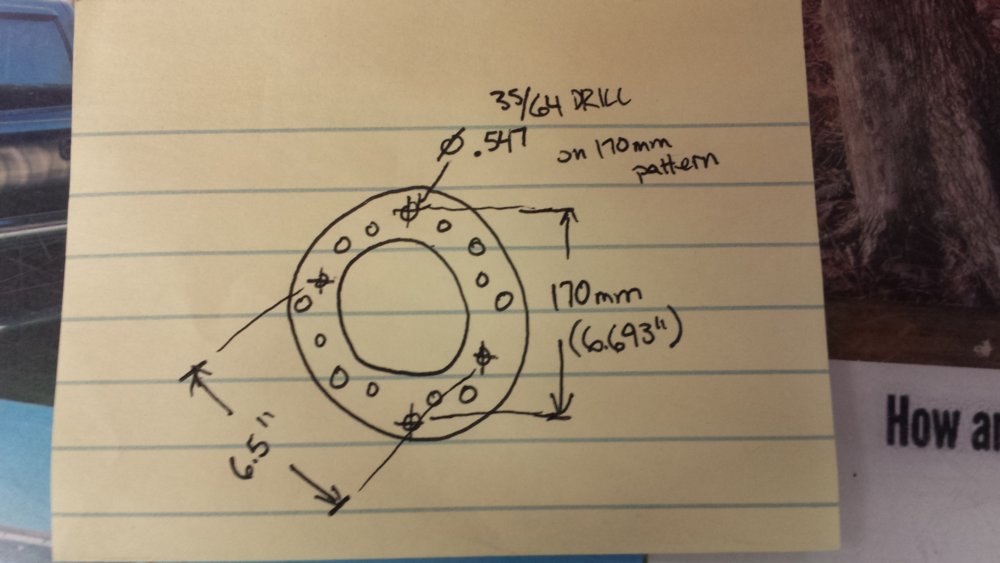 35/64 DRILL
Ø .547
on 170mm
pattern
170mm
(6.693")
6.5"
How a